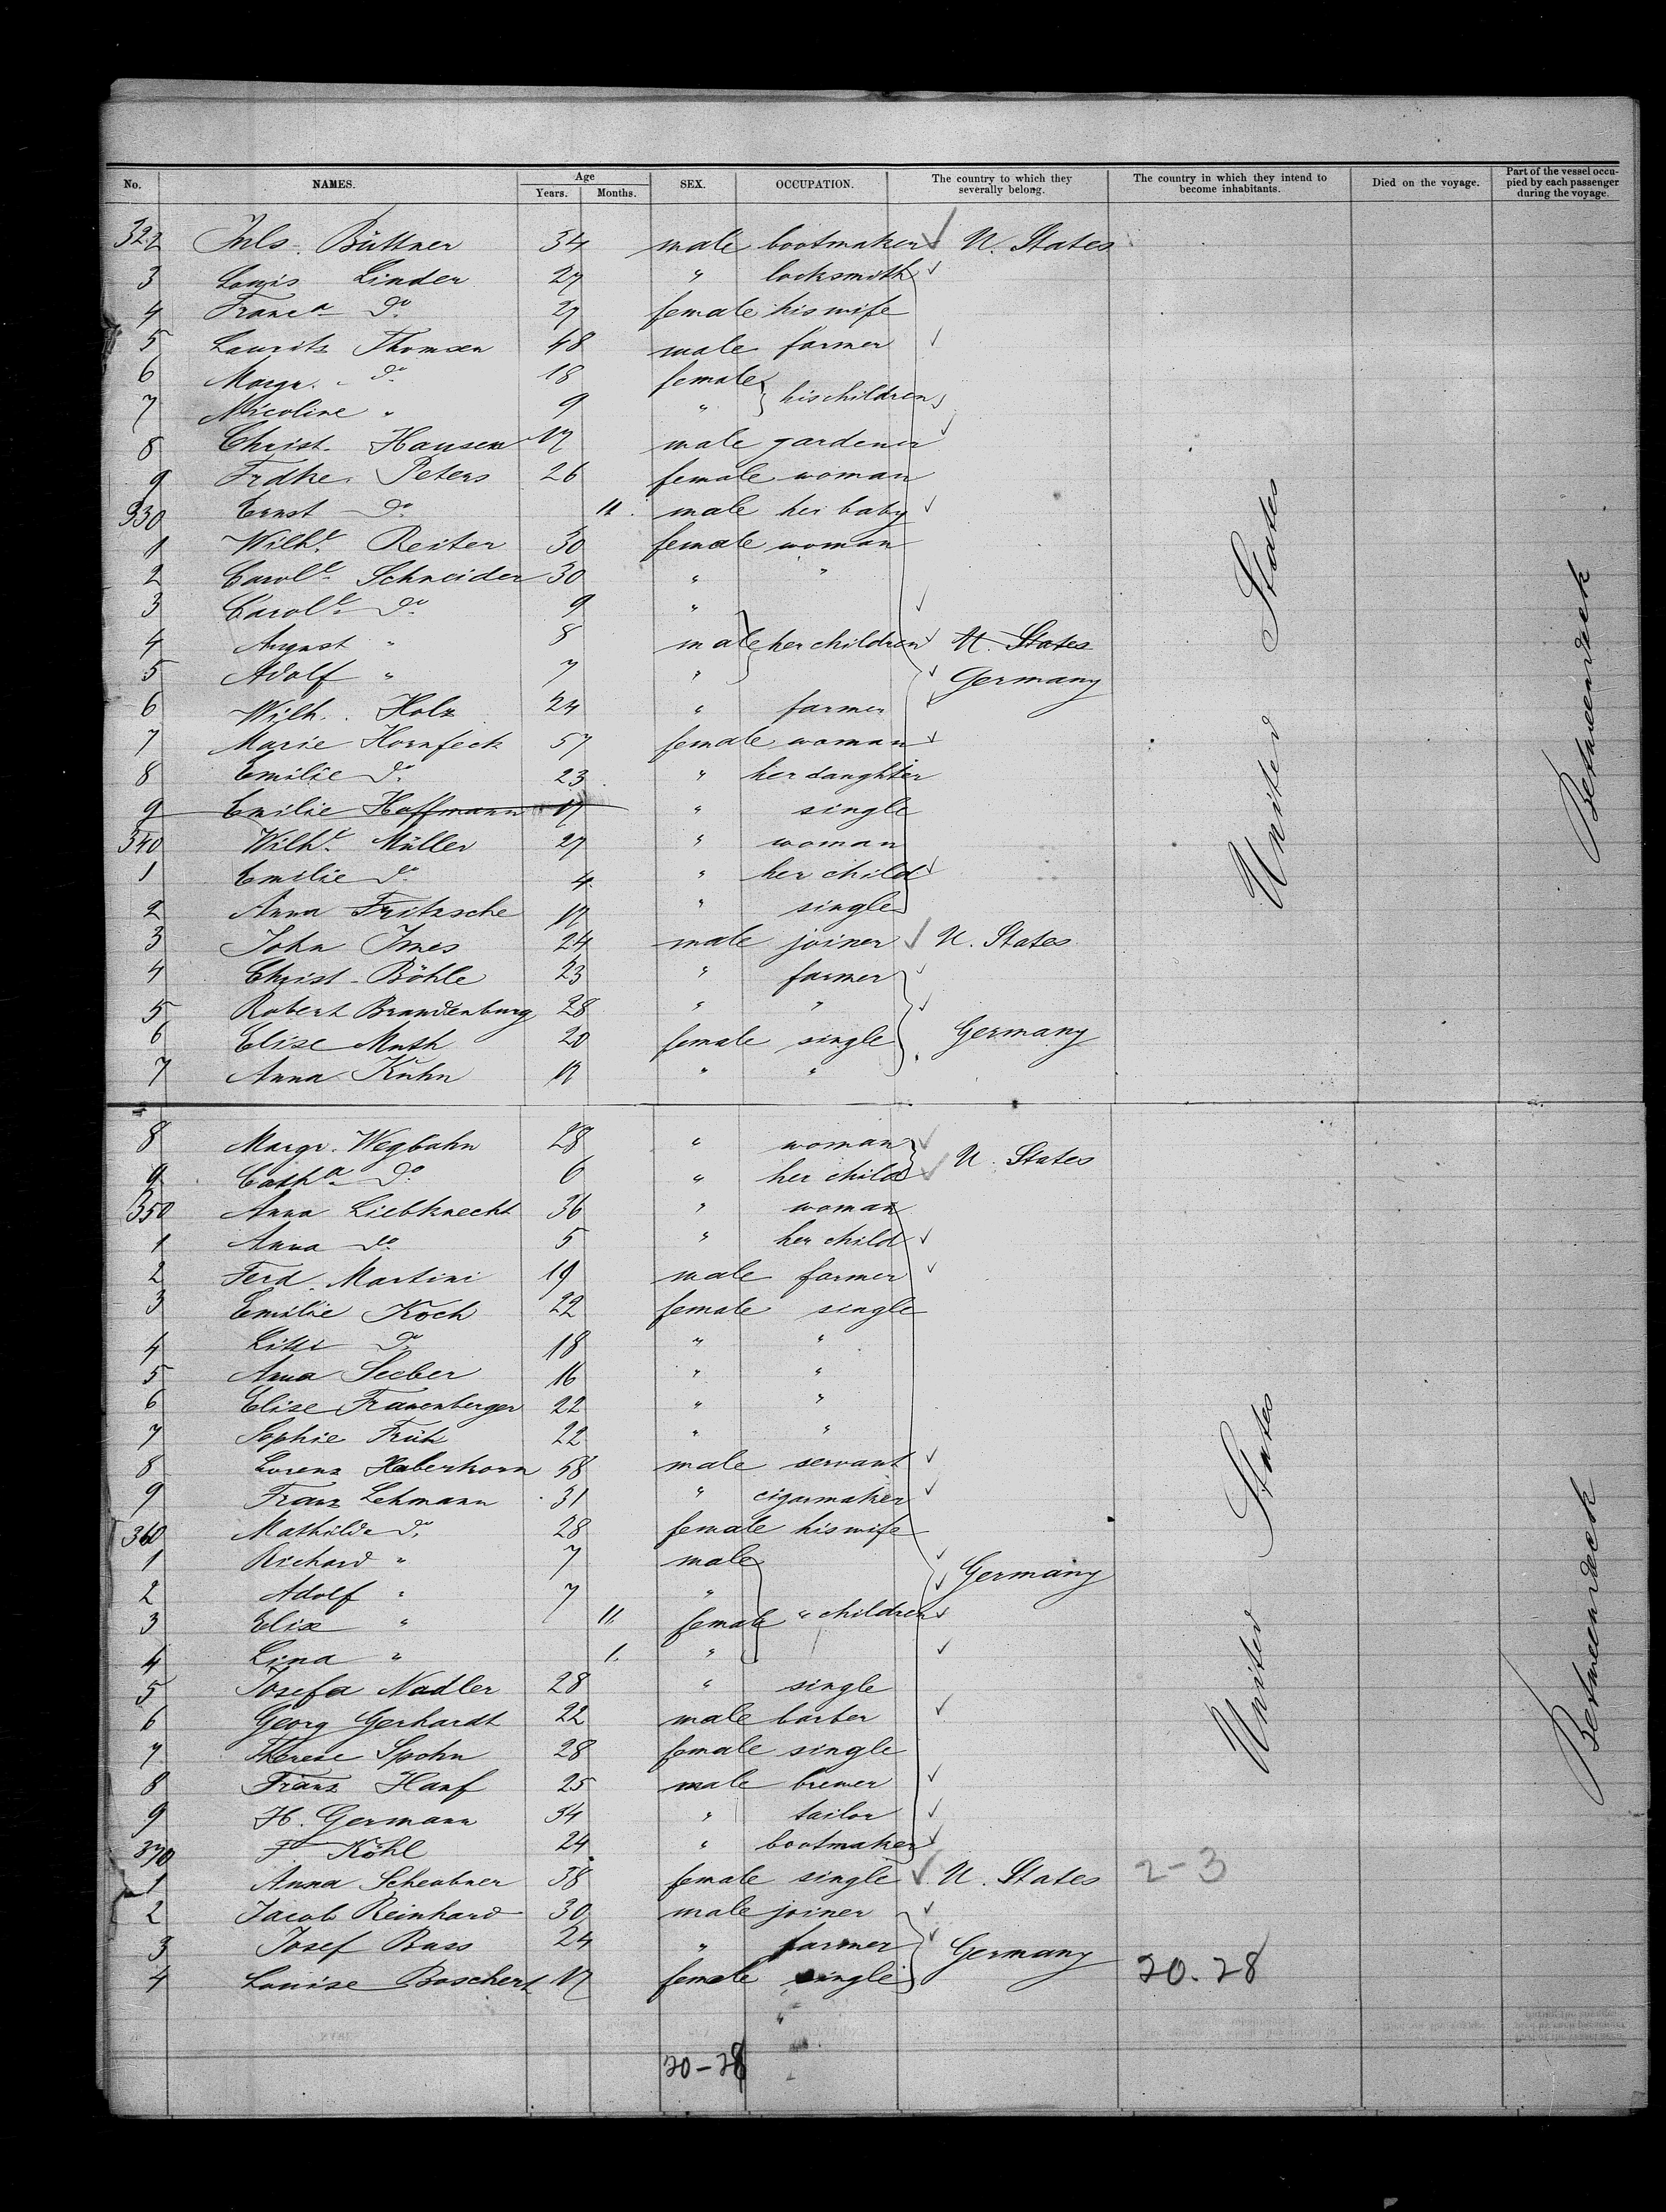 No. NAMES. Age Years. Months. SEX. OCCUPATION. The country to which they severally belong. The country in which they intend to become inhabitants. Died on the voyage. Part of the vessel occupied by each passenger during the voyage.
322 Juls. Büttner 34 male bootmaker U. States
3 Louis Linder 27 " locksmith
4 Franca Do. 27 female his wife
5 Laurits Thomsen 48 male farmer
6 Margr. Do. 18 female
7 Nicoline " 9 " } his children
8 Christ. Hansen 17 male gardener
9 Frdke. Peters 26 female woman
330 Ernst Do. 11. male her baby
1 Wilhe. Reiter 30 female woman
2 Carole. Schneider 30 " "
3 Carole. Do. 9 "
4 August " 8 male her children U. States
5 Adolf " 7 " Germany
6 Wilh. Holz 24 " farmer
7 Marie Hornfeck 57 female woman
8 Emilie Do. 23 " her daughter
9 Emilie Hoffmann 17 " single
340 Wilhe. Müller 27 " woman
1 Emilie Do. 4 " her child
2 Anna Fritzsche 17 " single
3 John Imes 24 male joiner U. States
4 Christ. Böhle 23 " farmer
5 Robert Brandenburg 28 " "
6 Elise Muth 20 female single Germany
7 Anna Kuhn " "
United States
Betweendeck
8 Margr. Wegbahn 28 " woman
9 Catha. Do. 6 " her child } U. States
350 Anna Liebknecht 36 " woman
1 Anna Do. 5 " her child
2 Ferd. Martini 19 male farmer
3 Emilie Koch 22 female single
4 Do. 18 " "
5 Anna Seeber 16 " "
6 Elise Frauenberger 22 " "
7 Sophie Früh 22 " "
8 Lorenz Haberkorn 58 male servant
9 Franz Lehmann 31 " cigarmaker
360 Mathilde Do. 28 female his wife
1 Richard " 7 male
2 Adolf " 7 " Germany
3 Elise " 11. female " children
4 Lina " 1. "
5 Josefa Nadler 28 " single
6 Georg Gerhardt 22 male barber
7 Therese Spohn 28 female single
8 Franz Hanf 25 male brewer
9 H. Germann 34 " tailor
370 F. Köhl 24 " bootmaker
1 Anna Scheubner 38 female single U. States 2-3
2 Jacob Reinhard 30 male joiner
3 Josef Bass 24 " farmer Germany
4 Louise Boschert 17 female single 20.28
United States
Betweendeck
20-28